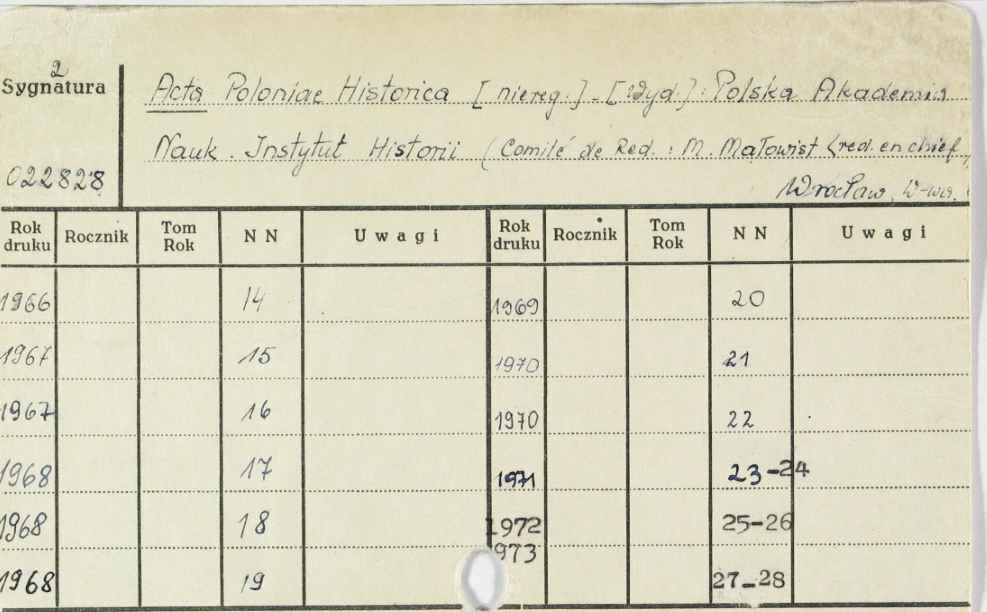 2
Sygnatura
022828
Acta Poloniae Historica [niereg.]. [Wyd.]: Polska Akademia
Nauk. Instytut Historii (Comité de Red.: M. Małowist <red. en chief
Wrocław, W-wa.
Rok druku Rocznik Tom Rok NN Uwagi Rok druku Rocznik Tom Rok NN Uwagi
1966 14 1969 20
1967 15 1970 21
1967 16 1970 22
1968 17 1971 23-24
1968 18 1972 25-26
973
1968 19 27-28